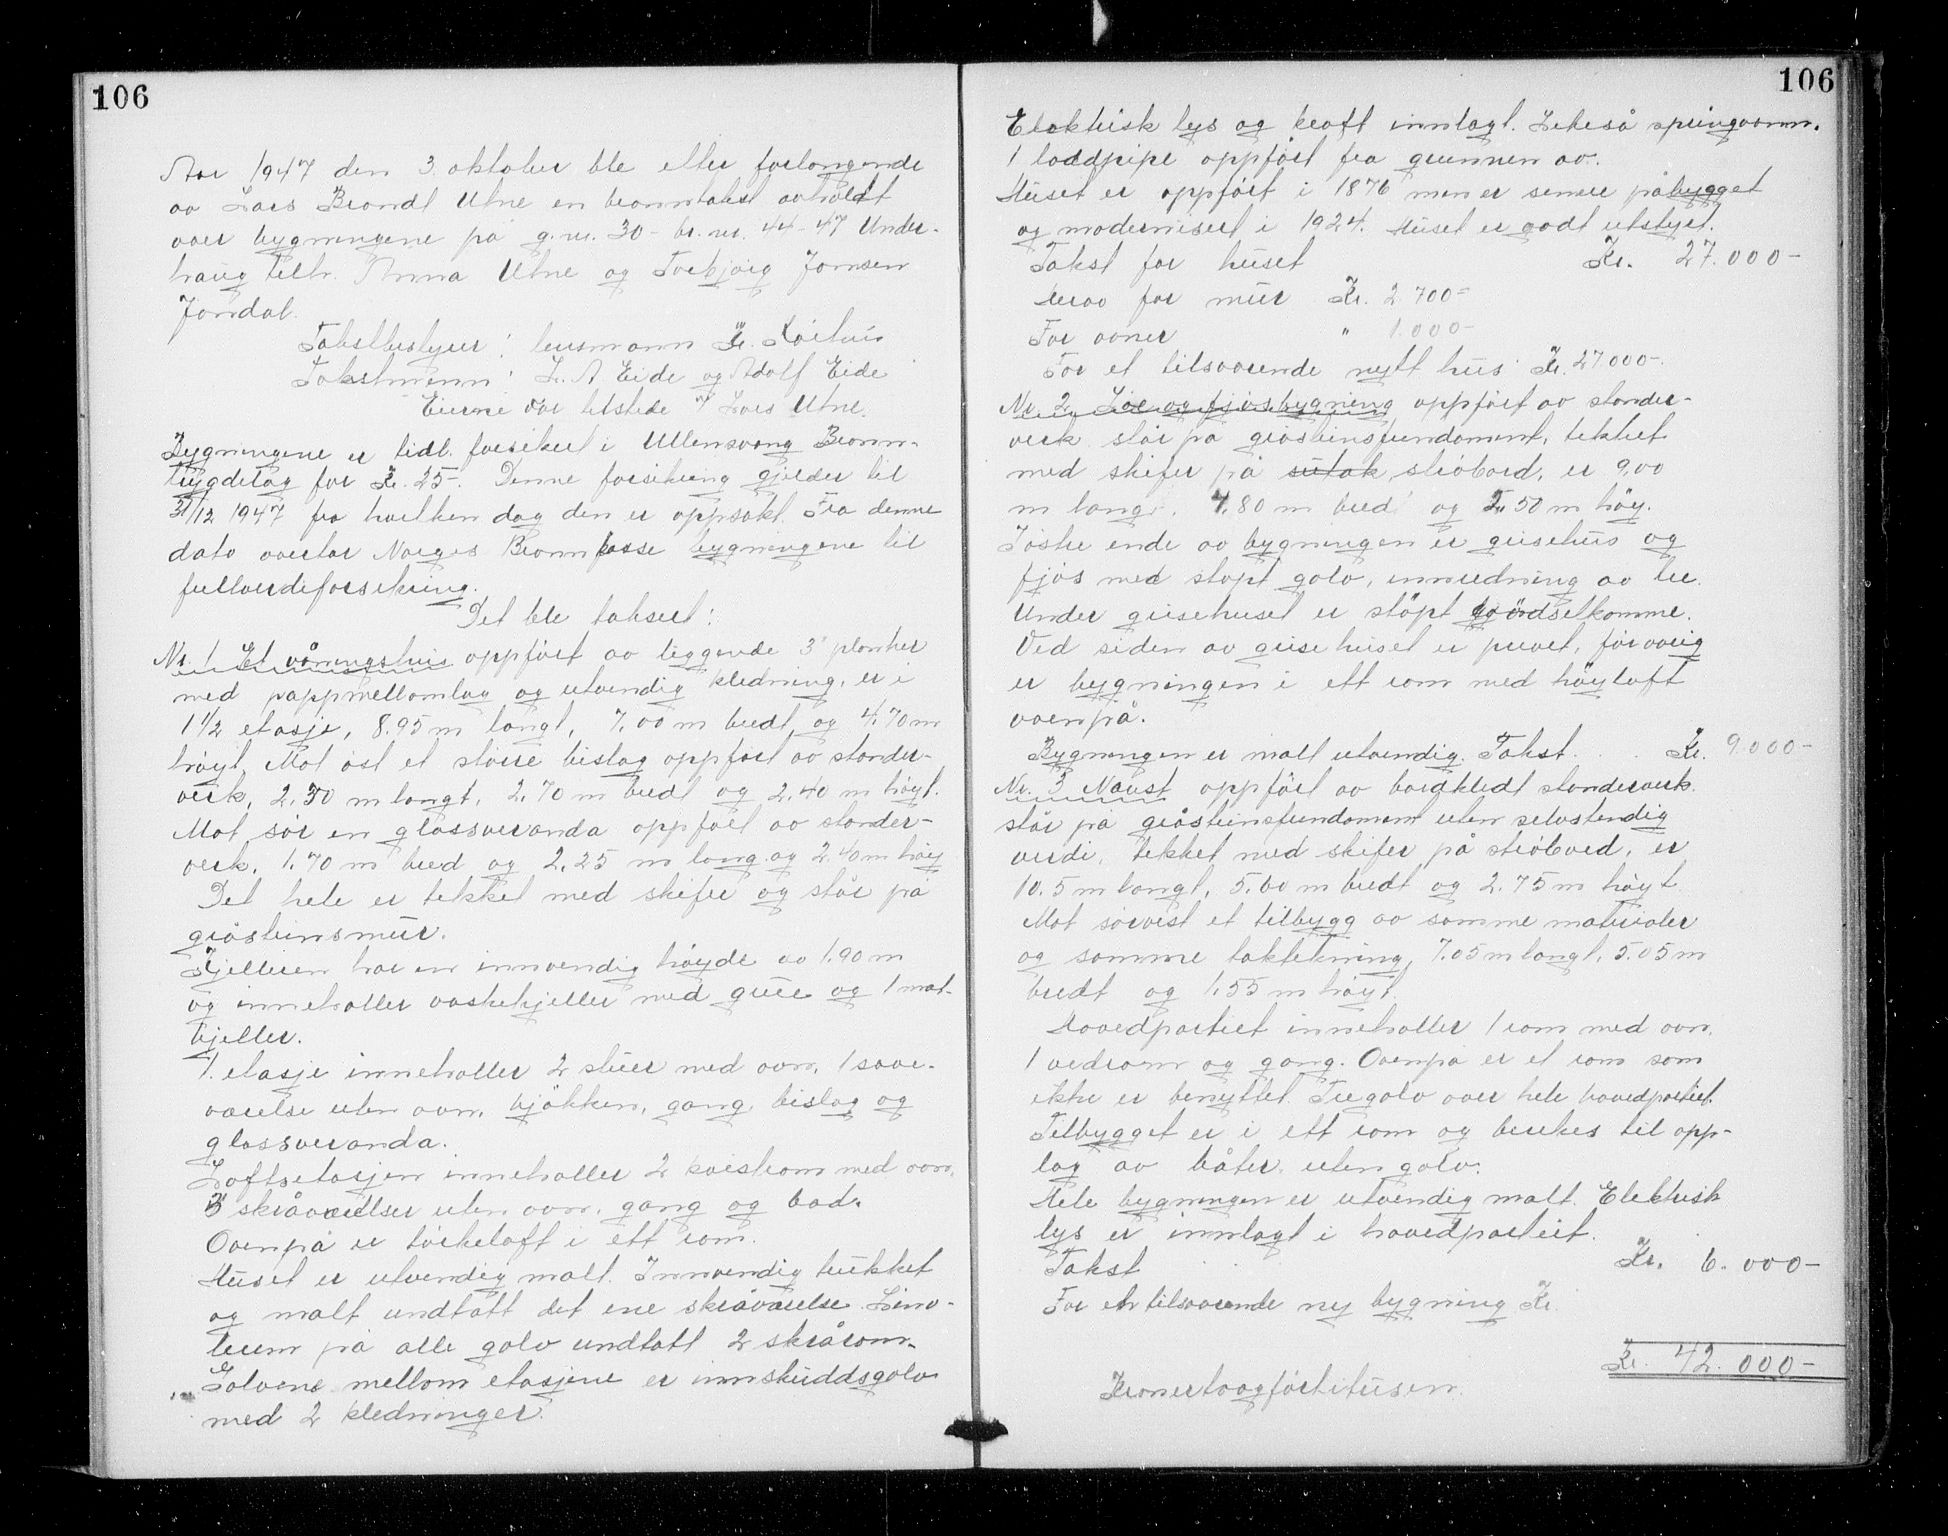 106
Aar 1947 den 3. oktober ble etter forlangende
av Lars Brandt Utne en branntakst avholdt
over bygningene på g.nr. 30 - br.nr. 44 - 47 Under-
haug tilh. Anna Utne og Torbjørg Jamsen
Jondal.
Takstbestyrer: lensmann Kr.
Takstmenn: L. A. Eide og Adolf Eide
Eierne var tilstede v/ Lars Utne.
Bygningene er tidl. forsikret i Ullensvang Brann-
trygdelag for Kr. 25-. Denne forsikring gjelder til
31/12 1947 fra hvilken dag den er oppsakt. Fra denne
dato overtar Norges Brannkasse bygningene til
fullverdiforsikring.
Det ble taksert:
Nr. 1 Et våningshus oppført av liggende 3" planker
med pappmellomlag og utvendig kledning, er i
1 1/2 etasje, 8.95 m langt, 7.00 m bredt og 4.70 m
høyt. Mot øst et større bislag oppført av stander-
verk, 2.30 m langt, 2.70 m bredt og 2.40 m høyt.
Mot sør en glassveranda oppført av stander-
verk, 1.70 m bred og 2.25 m lang og 2.40 m høy
Det hele er tekket med skifer og står på
gråsteinsmur.
Kjelleren har en innvendig høyde av 1.90 m
og inneholler vaskekjeller med grue og 1 mat-
kjeller.
1. etasje inneholler 2 stuer med ovn, 1 sove-
værelse uten ovn, kjøkken, gang, bislag og
glassveranda.
Loftsetasjen inneholler 2 kvistrom med ovn,
3 skråværelser uten ovn, gang og bad.
Ovenpå er tørkeloft i ett rom.
Huset er utvendig malt. Innvendig trukket
og malt undtatt det ene skråværelse. Lino-
leum på alle golv undtatt 2 skrårom.
Golvene mellom etasjene er innskuddsgolv
med 2 kledninger.
106
Elektrisk lys og kraft innlagt. Likeså springvann.
1 loddpipe oppført fra grunnen av.
Huset er oppført i 1876 men er senere påbygget
og modernisert i 1924. Huset er godt utstyrt.
Takst for huset Kr. 27.000-
herav for mur Kr. 2.700=
For ovner " 1.000-
For et tilsvarende nytt hus Kr. 27.000-.
Nr. 2 Løe og fjøsbygning oppført av stander-
verk står på gråsteinsfundament, tekket
med skifer på sutak strøbord, er 9.00
m lang, 4.80 m bred og 2.50 m høy.
I østre ende av bygningen er grisehus og
fjøs med støpt golv, innredning av tre.
Under grisehuset er støpt gjødselkomme.
Ved siden av grisehuset er privet, forøvrig
er bygningen i ett rom med høyloft
ovenpå.
Bygningen er malt utvendig. Takst. Kr. 9.000-
Nr. 3 Naust oppført av bordkledt standerverk
står på gråsteinsfundament uten selvstendig
verdi, tekket med skifer på strøbord, er
10.5 m langt, 5.60 m bredt og 2.75 m høyt.
Mot sørvest et tilbygg av samme materialer
og samme taktekning, 7.05 m langt, 5.05 m
bredt og 1.55 m høyt.
Hovedpartiet inneholler 1 rom med ovn,
1 vedrom og gang. Ovenpå er et rom som
ikke er benyttet. Tregolv over hele hovedpartiet.
Tilbygget er i ett rom og brukes til opp-
lag av båter, uten golv.
Hele bygningen er utvendig malt. Elektrisk
lys er innlagt i hovedpartiet.
Takst Kr. 6.000-
For en tilsvarende ny bygning Kr.
Kr. 42.000-
Kronertoogførtitusen.